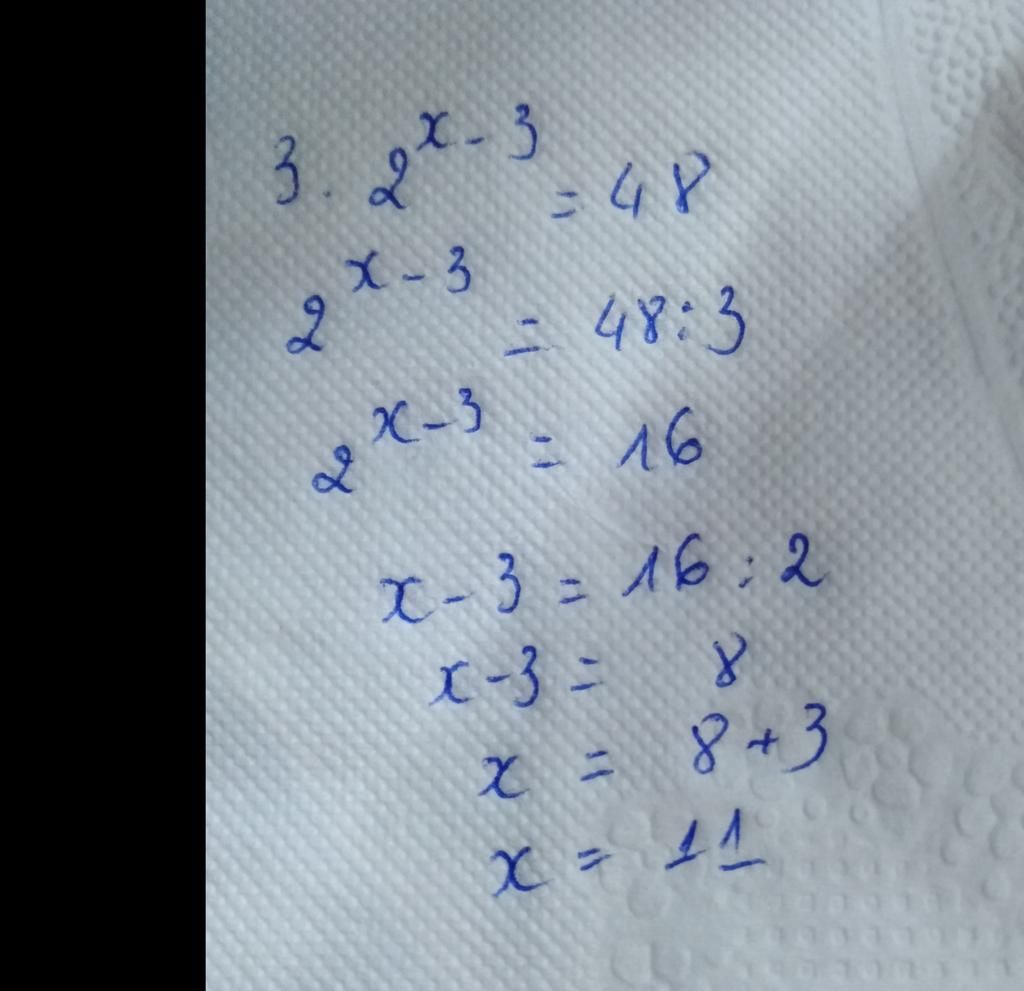 3. 2^{x-3} = 48
2^{x-3} = 48:3
2^{x-3} = 16
x-3 = 16:2
x-3 = 8
x = 8+3
x = 11